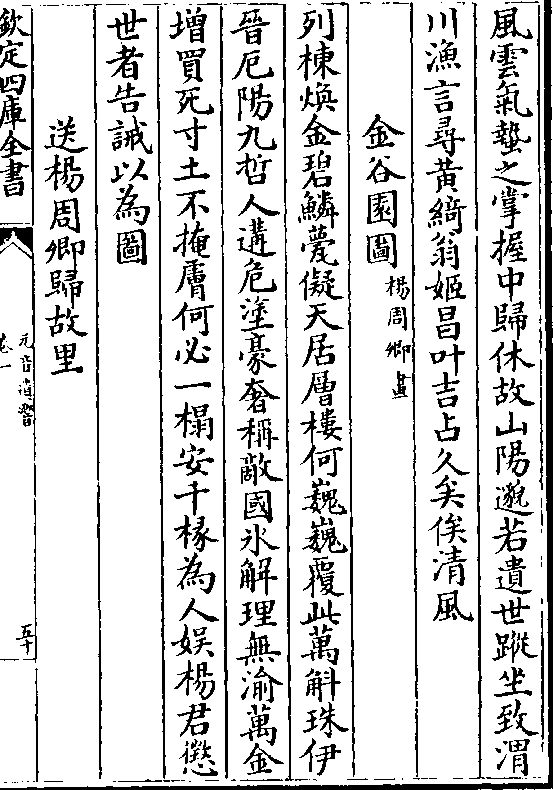 風雲氣蟄之掌握中歸休故山陽邈若遺世蹤坐致渭
川漁言尋黃綺翁姬昌叶吉占久矣俟清風
金谷園圖楊周卿畫
列棟煥金碧鱗甍儗天居層樓何巍巍覆此萬斛珠伊
晉厄陽九哲人遘危塗豪奢稱敵國氷解理無渝萬金
增買死寸土不掩膚何必一榻安千椽為人娱楊君懲
世者告誡以為圖
送楊周卿歸故里
欽定四庫全書
元音遺響
卷一
五十